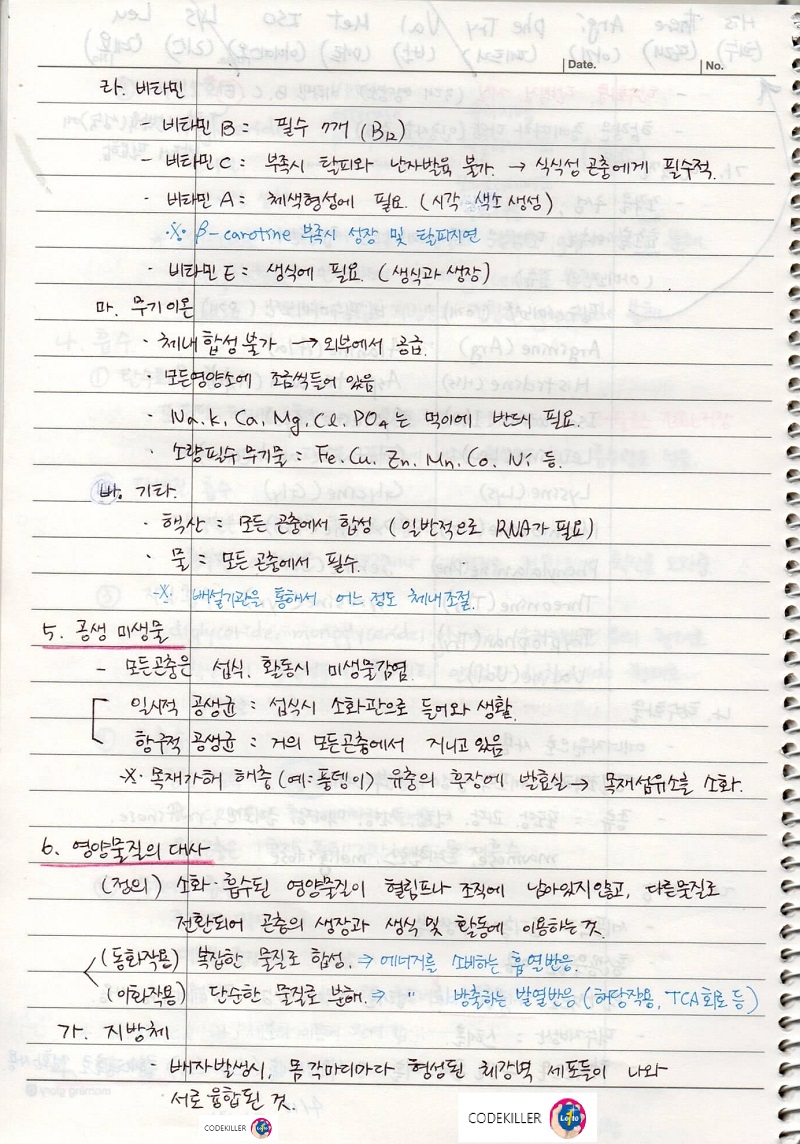 Date.
No.
라. 비타민
- 비타민 B : 필수 7개 (B12)
- 비타민 C : 부족시 탈피와 난자발육 불가. → 식식성 곤충에게 필수적.
· 비타민 A : 체색형성에 필요. (시각 색소 생성)
※ β-carotine 부족시 성장 및 탈피지연
· 비타민 E : 생식에 필요. (생식과 생장)
마. 무기이온
· 체내 합성불가 → 외부에서 공급.
· 모든영양소에 조금씩들어 있음
· Na, K, Ca, Mg, Cl, PO4 는 먹이에 반드시 필요.
· 소량필수 무기물 = Fe, Cu, Zn, Mn, Co, Ni 등.
바. 기타.
· 핵산 : 모든 곤충에서 합성 (일반적으로 RNA가 필요)
· 물 : 모든 곤충에서 필수.
※ 배설기관을 통해서 어느 정도 체내조절.
5. 공생 미생물
- 모든곤충은 섭식, 활동시 미생물감염.
일시적 공생균 : 섭식시 소화관으로 들어와 생활.
항구적 공생균 : 거의 모든곤충에서 지니고 있음
※ 목재가해 해충 (예:풍뎅이) 유충의 후장에 발효실 → 목재섬유소를 소화.
6. 영양물질의 대사
(정의) 소화·흡수된 영양물질이 혈림프나 조직에 남아있지않고, 다른물질로
전환되어 곤충의 생장과 생식 및 활동에 이용하는것.
(동화작용) 복잡한 물질로 합성. ⇒ 에너지를 소비하는 흡열반응.
(이화작용) 단순한 물질로 분해. ⇒ " 방출하는 발열반응. (해당작용, TCA회로 등)
가. 지방체
· 배자발생시, 몸 각마디마다 형성된 체강벽 세포들이 나와
서로 융합된 것.
CODEKILLER
CODEKILLER